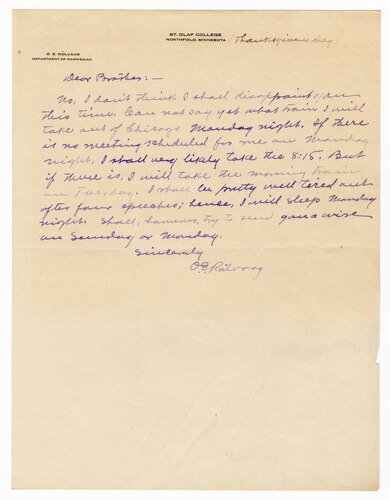 ST. OLAF COLLEGE
NORTHFIELD, MINNESOTA
(Thanksgiven day)
O. E. ROLVAAG
DEPARTMENT OF NORWEGIAN
Dear Brother:—
No, I don't think I shall disappoint you
this time. Can not say yet what train I will
take out of Chicago Monday night. If there
is no meeting scheduled for me on Monday
night, I shall very likely take the 8:15. But
if there is, I will take the morning train
on Tuesday. I shall be pretty well tired out
after four speeches; hence, I will sleep Monday
night. Shall, however, try to send you a wire
on Sunday or Monday.
Sincerely
O.E. Rölvaag